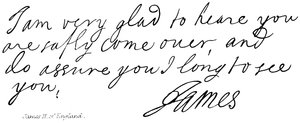 I am very glad to heare you
are safly come over, and
do assure you I long to see
you,
James
James II. of England.